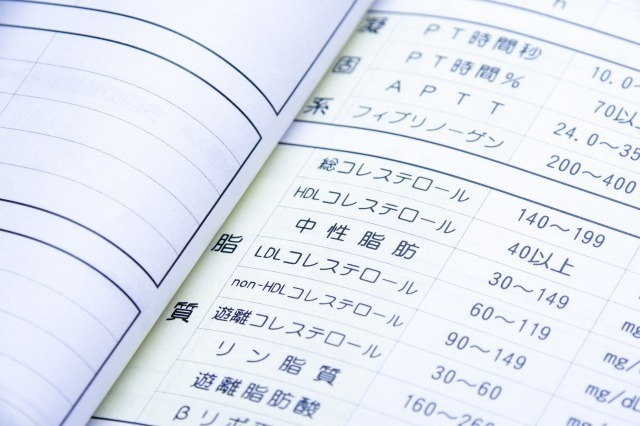 凝固系
PT時間秒 10.0～
PT時間% 70以上
APTT 24.0～35
フィブリノーゲン 200～400
脂質
総コレステロール 140～199
HDLコレステロール 40以上
中性脂肪 30～149
LDLコレステロール 60～119
non-HDLコレステロール 90～149
遊離コレステロール 30～60 mg/dL
リン脂質 160～260
遊離脂肪酸
βリポ